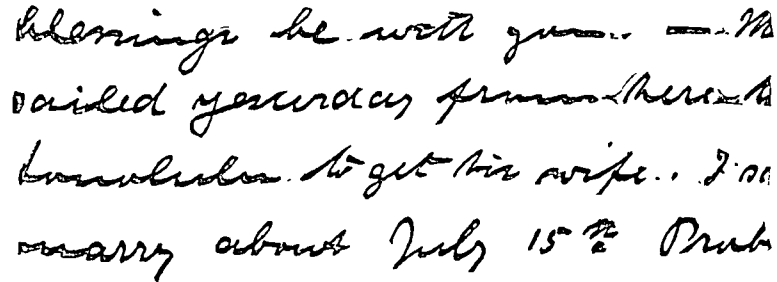 blessings be with you. — M
sailed yesterday from here t
Honolulu to get his wife. I
marry about July 15th Prob